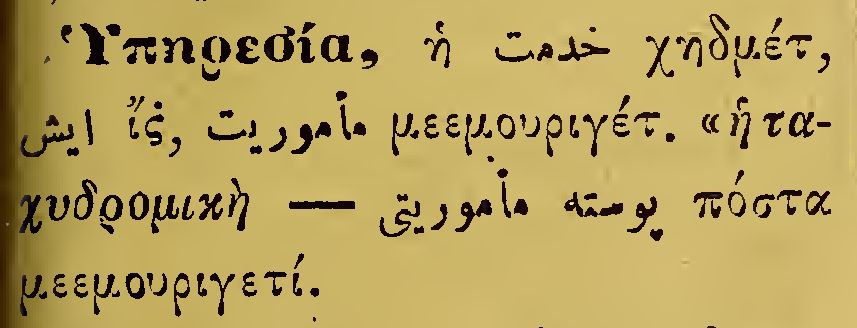 Ὑπηρεσία, ἡ خدمت χηδμέτ,
ايش ἴς̇, مأموريت μεεμουριγέτ. «ἡ τα-
χυδρομικὴ — پوسته مأموريتى πόστα
μεεμουριγετί.